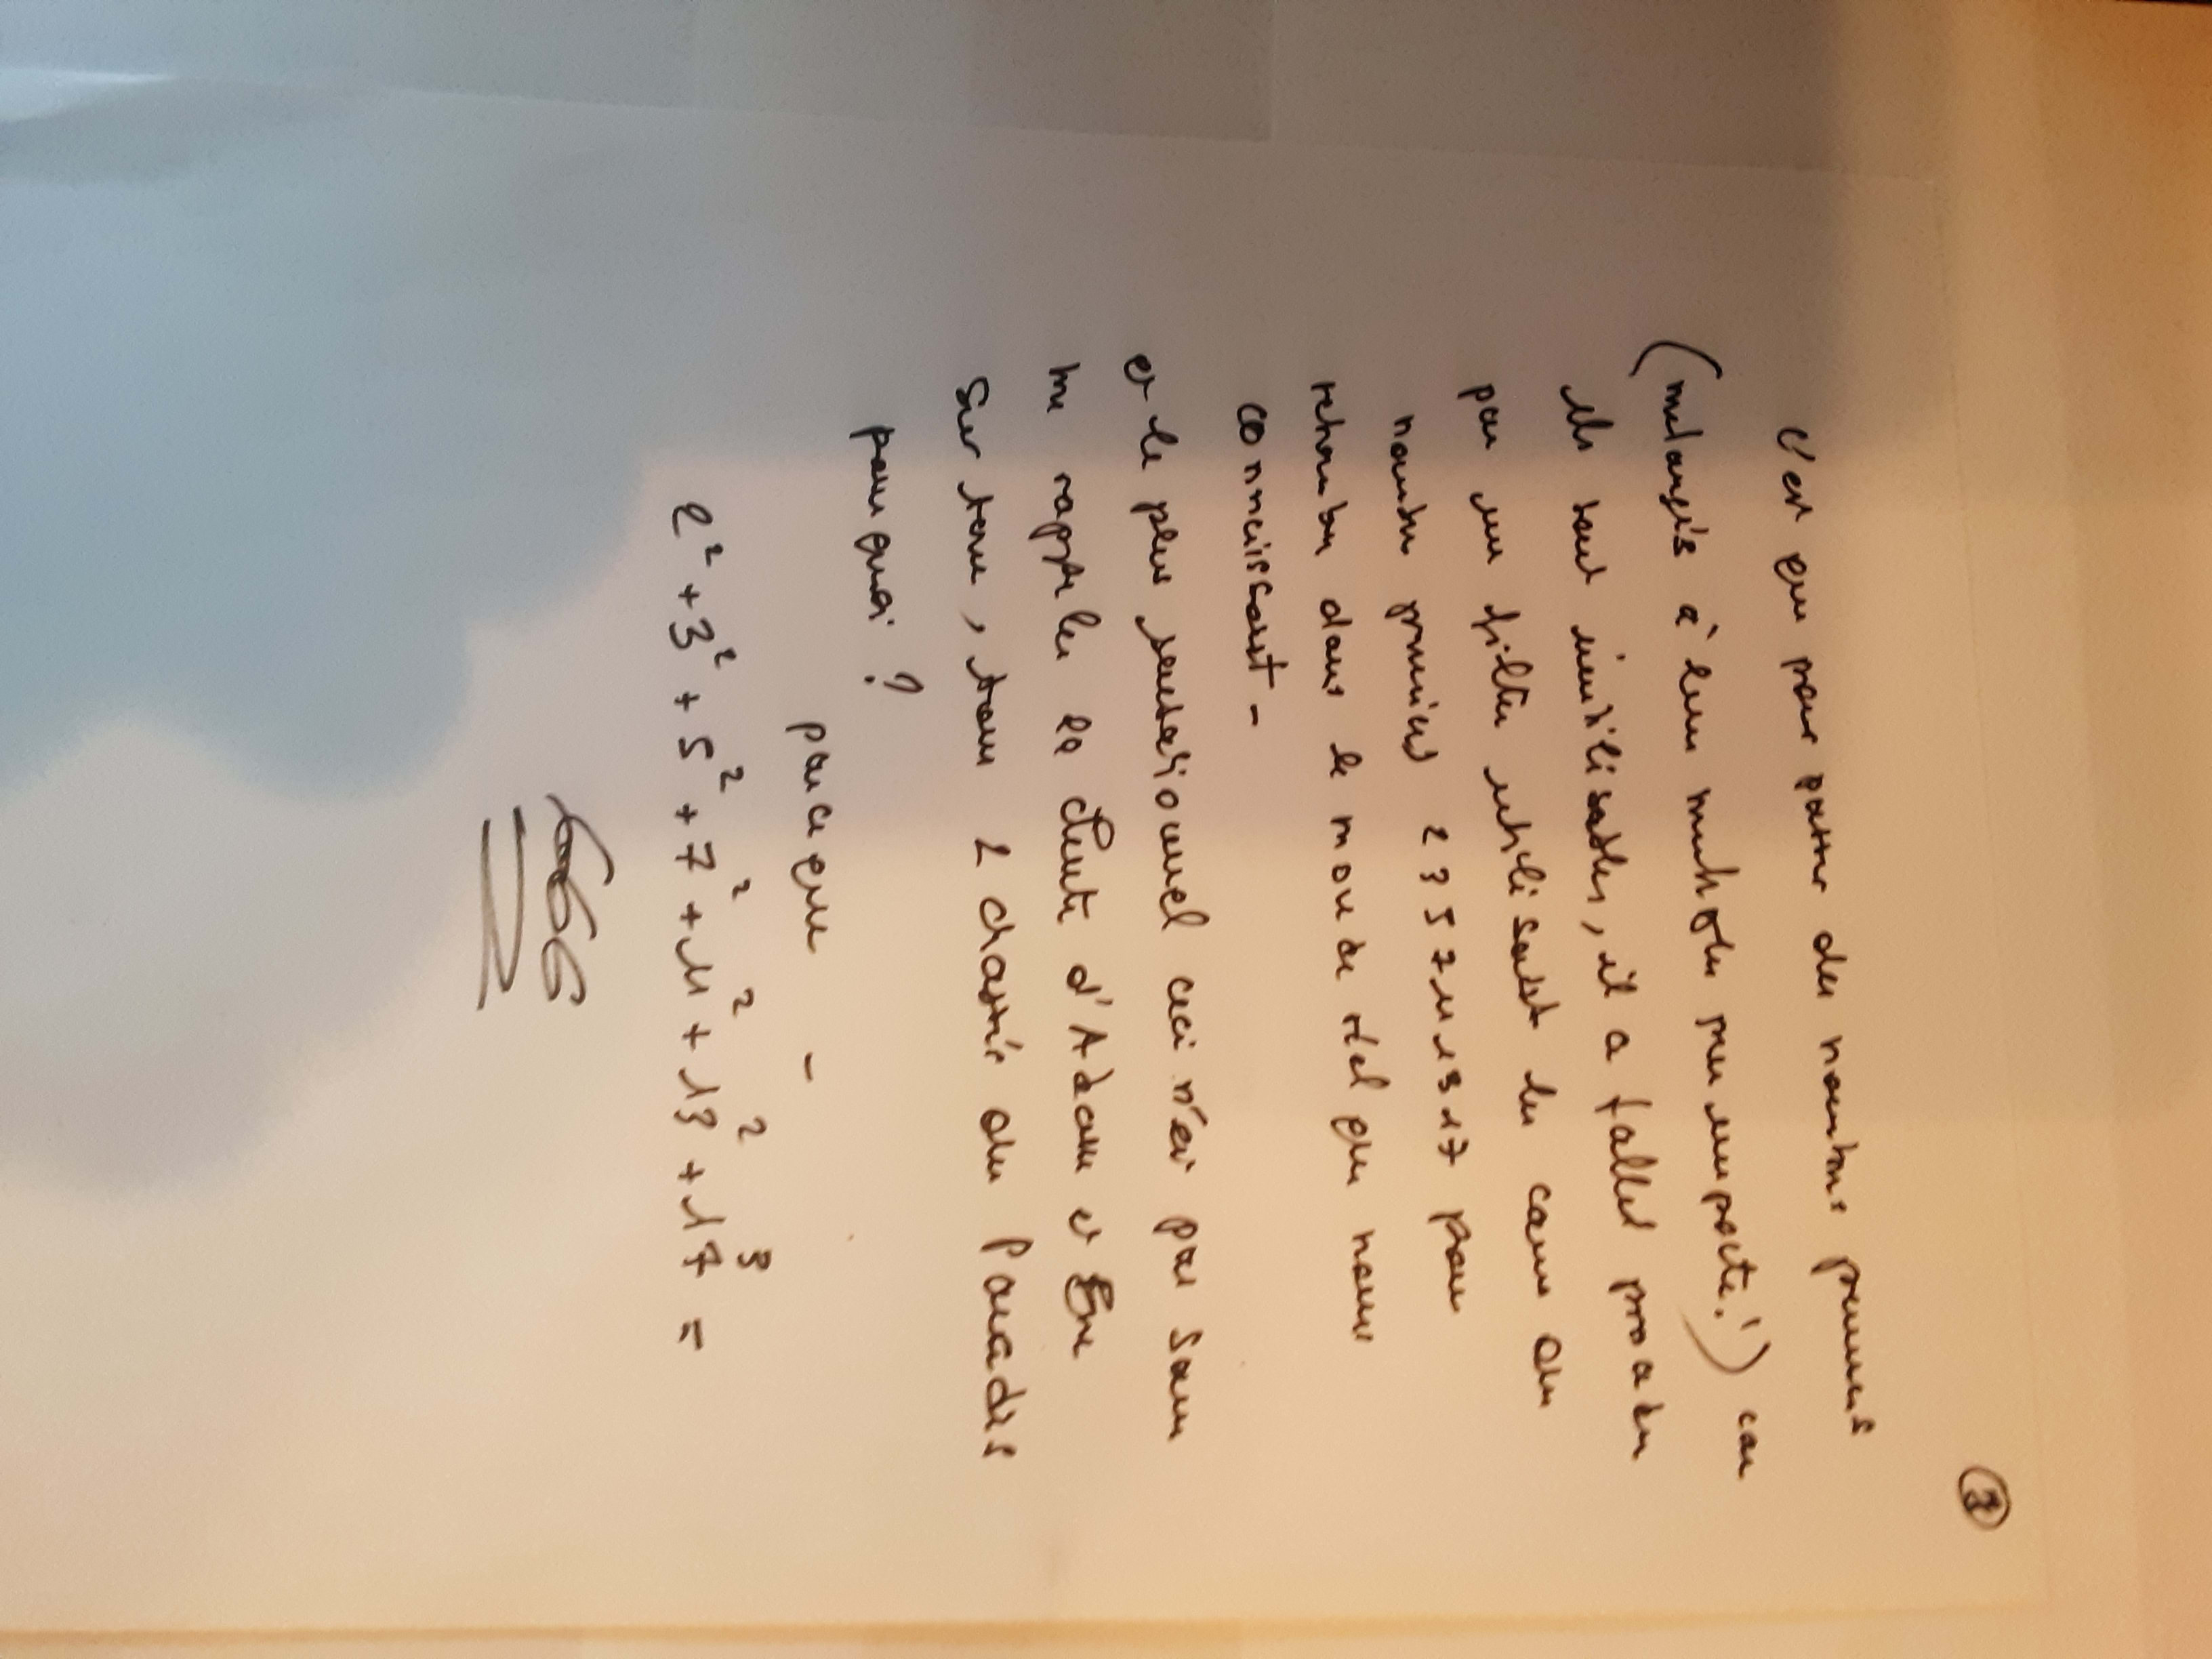 ③
C'est que pour passer des nombres premiers
(mélangés à leur multiples peu importe!) car
ils sont inutilisables, il a fallut procéder
par un filtre utilisant les carrés des
nombres premiers 2 3 5 7 11 13 17 pour
retomber dans le monde réel que nous
connaissont -
et le plus sensationnel ceci n'est pas sans
me rappeler la chute d'Adam et Eve
sur terre, tous 2 chassés du Paradis
pourquoi ?
parceque -
2² + 3² + 5² + 7² + 11² + 13² + 17² =
666